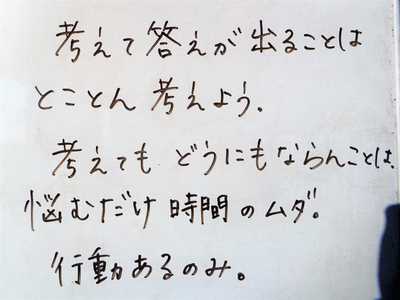 考えて答えが出ることは
とことん考えよう.
考えてもどうにもならんことは、
悩むだけ時間のムダ。
行動あるのみ。